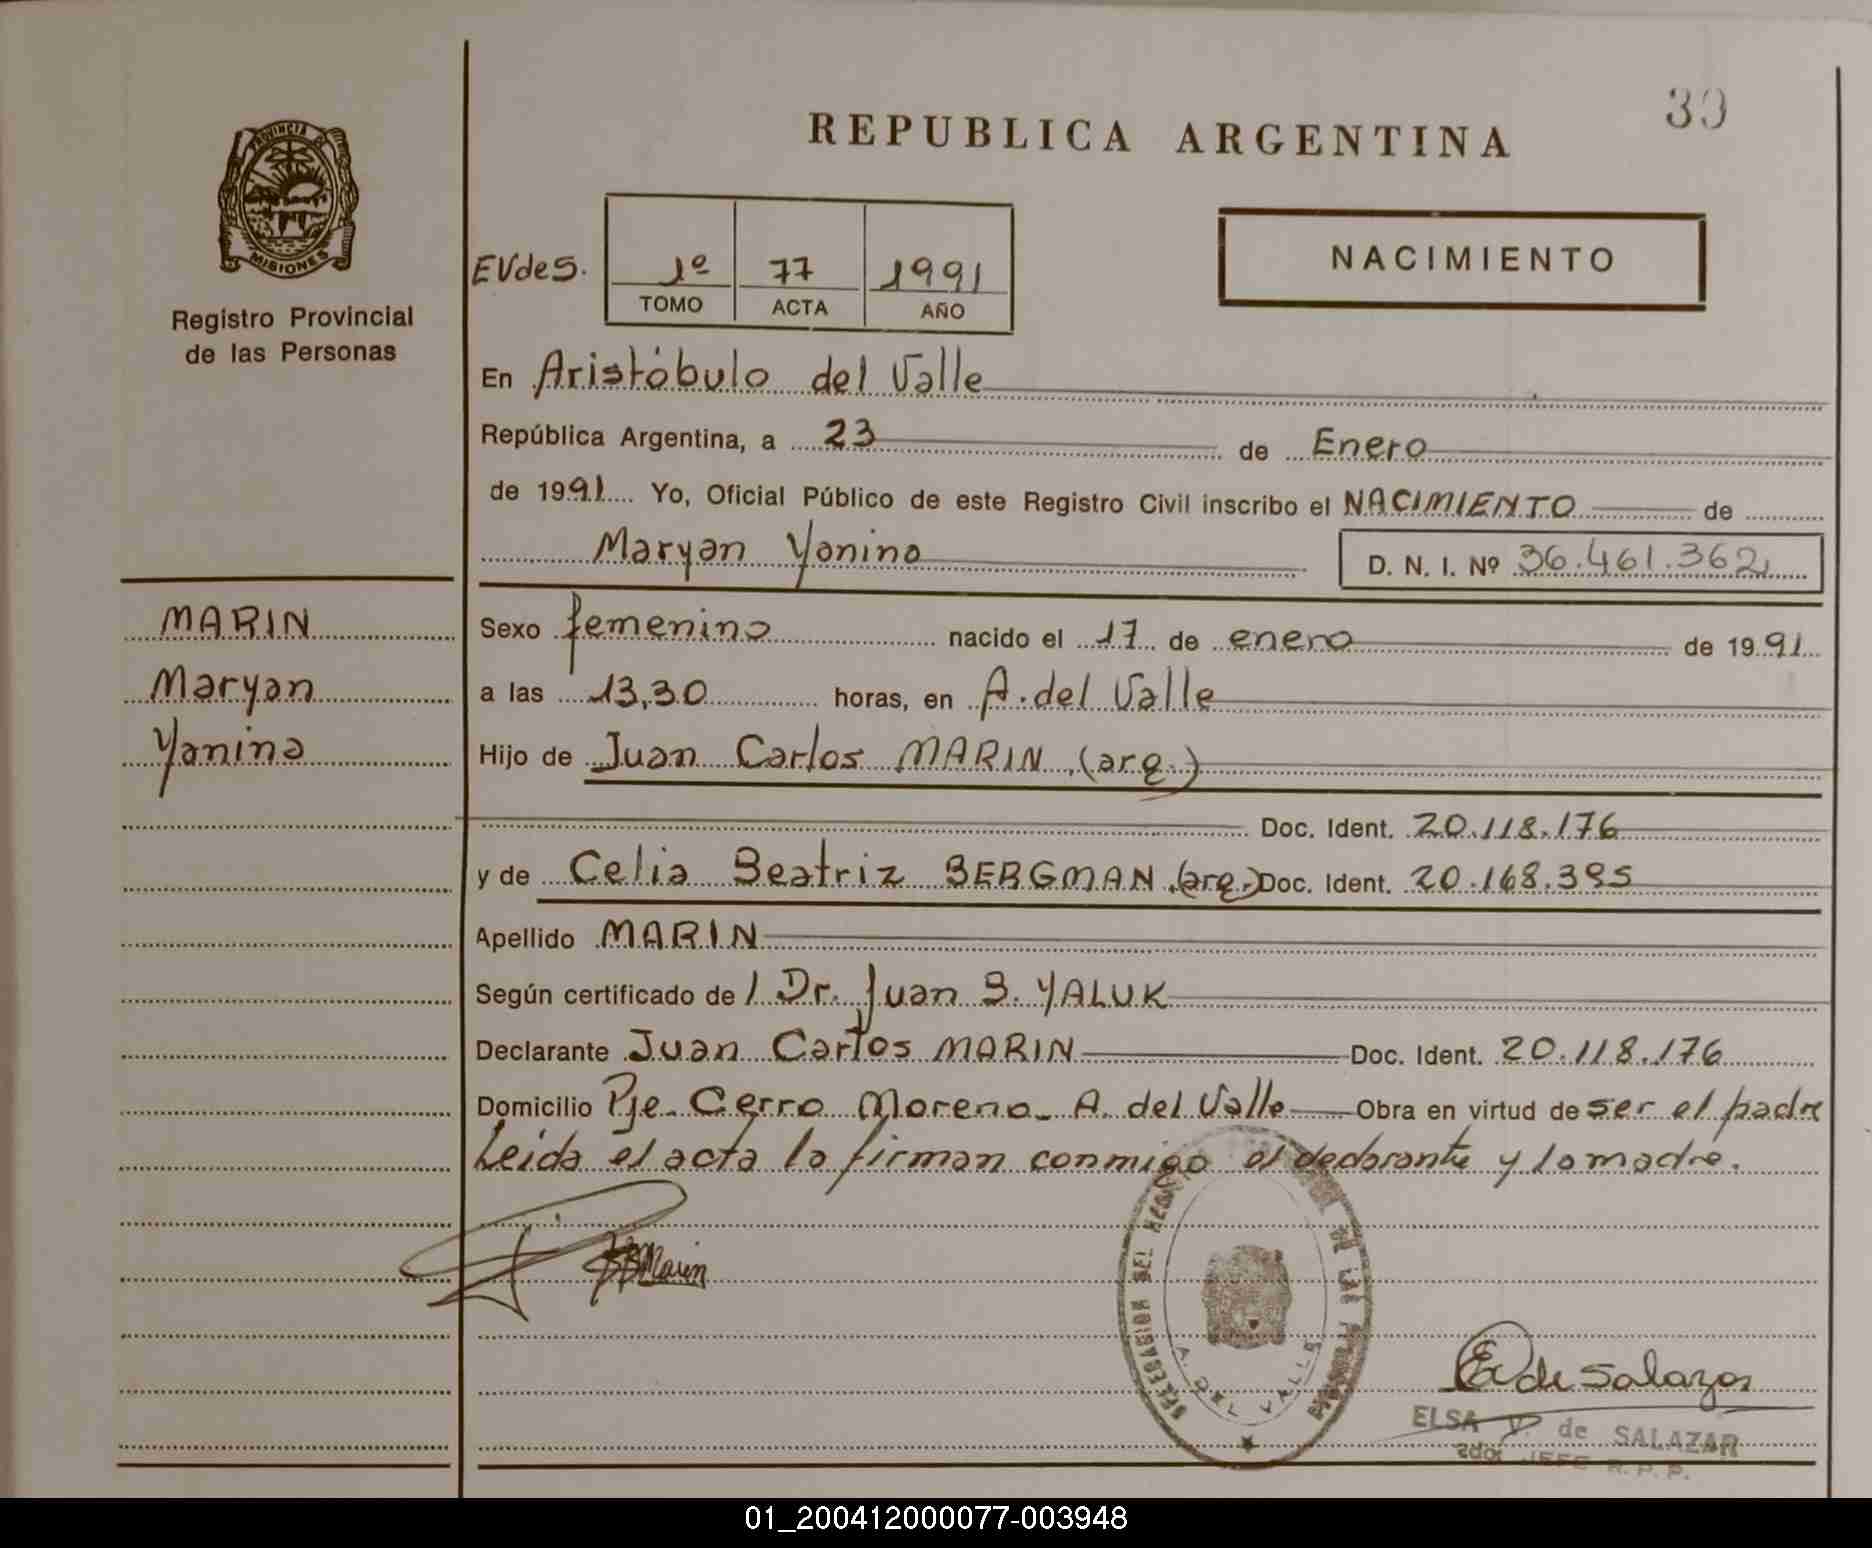 39
REPUBLICA ARGENTINA
PROVINCIA DE
MISIONES
Registro Provincial
de las Personas
EVdeS.
1º 77 1991
TOMO ACTA AÑO
NACIMIENTO
En Aristóbulo del Valle
República Argentina, a 23 de Enero
de 1991 Yo, Oficial Público de este Registro Civil inscribo el NACIMIENTO de
Maryan Yanina D. N. I. Nº 36.461.362
MARIN
Maryan
Yanina
Sexo femenino nacido el 17 de enero de 1991
a las 13,30 horas, en A. del Valle
Hijo de Juan Carlos MARIN (arg.)
Doc. Ident. 20.118.176
y de Celia Beatriz BERGMAN (arg.) Doc. Ident. 20.168.395
Apellido MARIN
Según certificado de / Dr. Juan S. YALUK
Declarante Juan Carlos MARIN Doc. Ident. 20.118.176
Domicilio Pje. Cerro Moreno - A. del Valle Obra en virtud de ser el padre
Leida el acta la firman conmigo el declarante y la madre.
Marin
DELEGACION DEL
A. DEL VALLE
EV de Salazar
ELSA V. de SALAZAR
JEFE R. P. P.
01_200412000077-003948